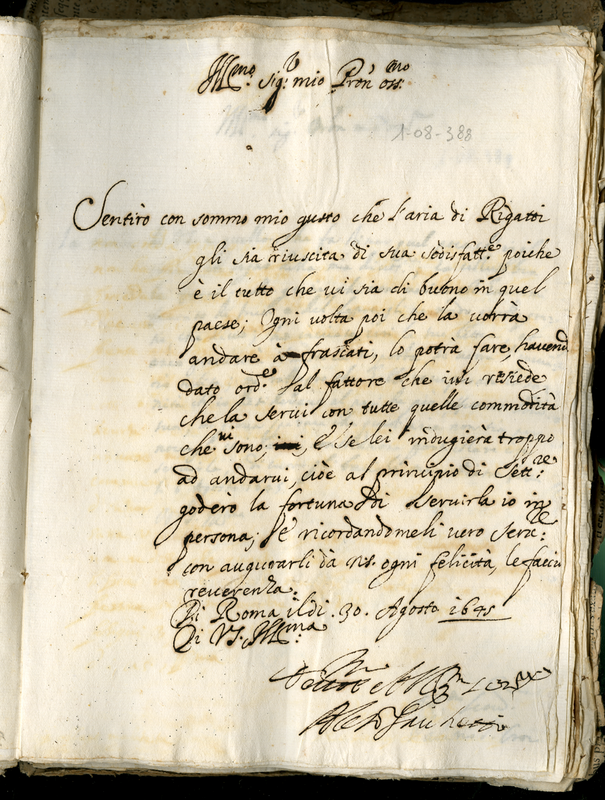 Ill.mo Sig.r mio Pron oss.mo
1-08-388
Sentirò con sommo mio gusto che l'aria di Rigatti
gli sia riuscita di sua sodisfatt.e poiche
è il tutto che vi sia di buono in quel
paese; Ogni volta poi che la vorrà
andare à frascati, lo potrà fare, havend
dato ord.e al fattore che ivi resiede
che la servi con tutte quelle commodità
che vi sono, E se lei indugierà troppo
ad andarvi, cioè al principio di Sett.re
goderò la fortuna di servirla io in
persona; E ricordandomeli vero Ser.re
con augurarli da N.S. ogni felicità, le faccio
reverenza.
Di Roma il di .30. Agosto 1645
Di V.S. Ill.ma